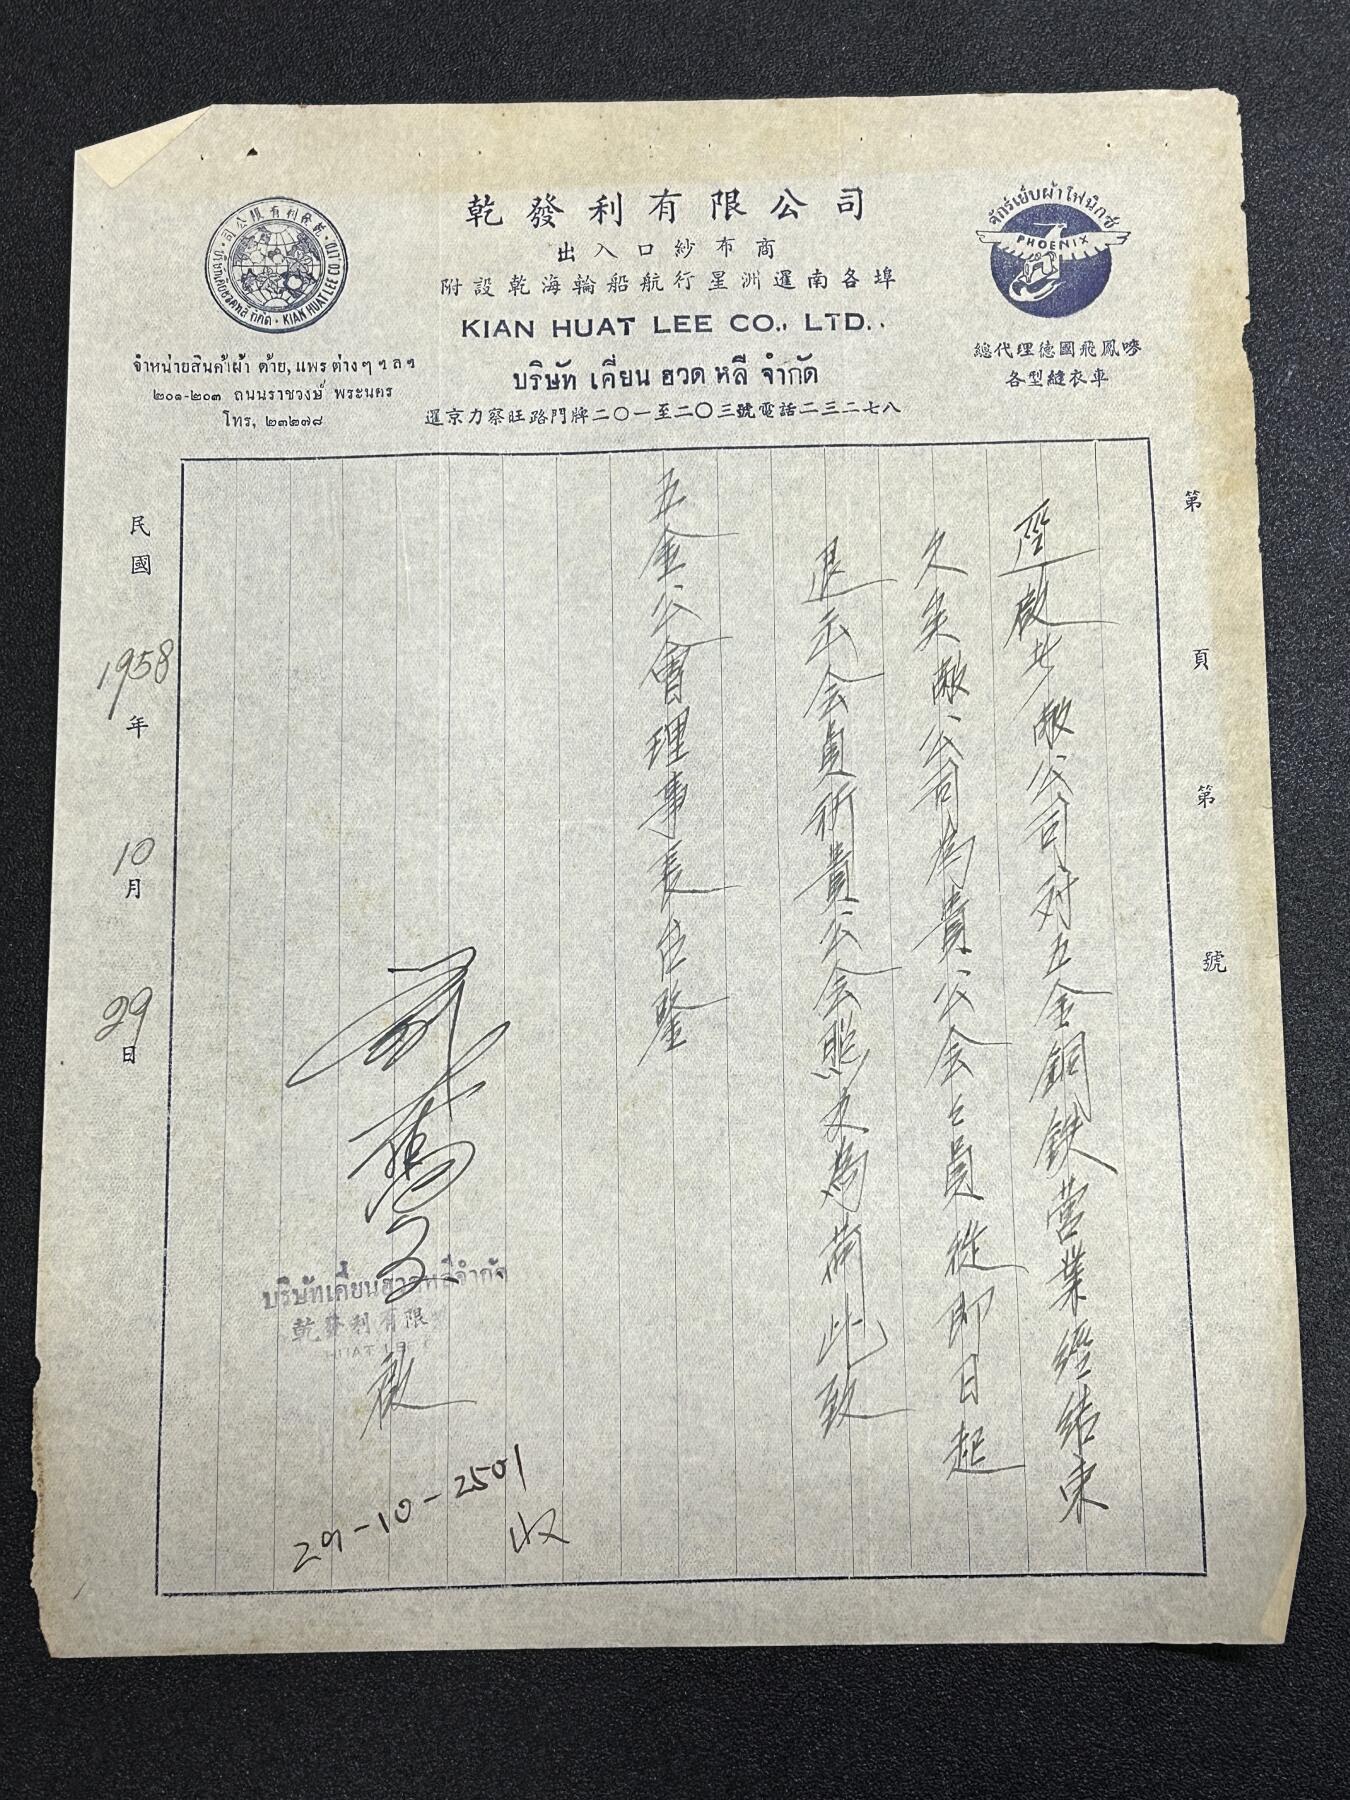 乾發利有限公司
出入口紗布商
附設乾海輪船航行星洲暹南各埠
KIAN HUAT LEE CO., LTD.
บริษัท เคี่ยน ฮวด หลี จำกัด
暹京力察旺路門牌二〇一至二〇三號電話二三二七八
乾發利有限公司
KIAN HUAT LEE CO. LTD.
จำหน่ายสินค้าผ้า ด้าย, แพรต่างๆ ฯลฯ
๒๐๑-๒๐๓ ถนนราชวงษ์ พระนคร
โทร. ๒๓๒๗๘
จักร์เย็บผ้าໄฟนิกซ์
PHOENIX
總代理德國飛鳳嘜
各型縫衣車
第 頁 第 號
逕啟者敝公司对五金銅鉄营業經結束
久矣敝公司為貴公会会員從即日起
退出会員祈貴公会照文為荷此致
五金公會理事長台鑒
บริษัทเคี่ยนฮวดหลีจำกัด
乾發利有限
HUAT LEE
啟
29-10-2501
收
民國 1958 年 10 月 29 日